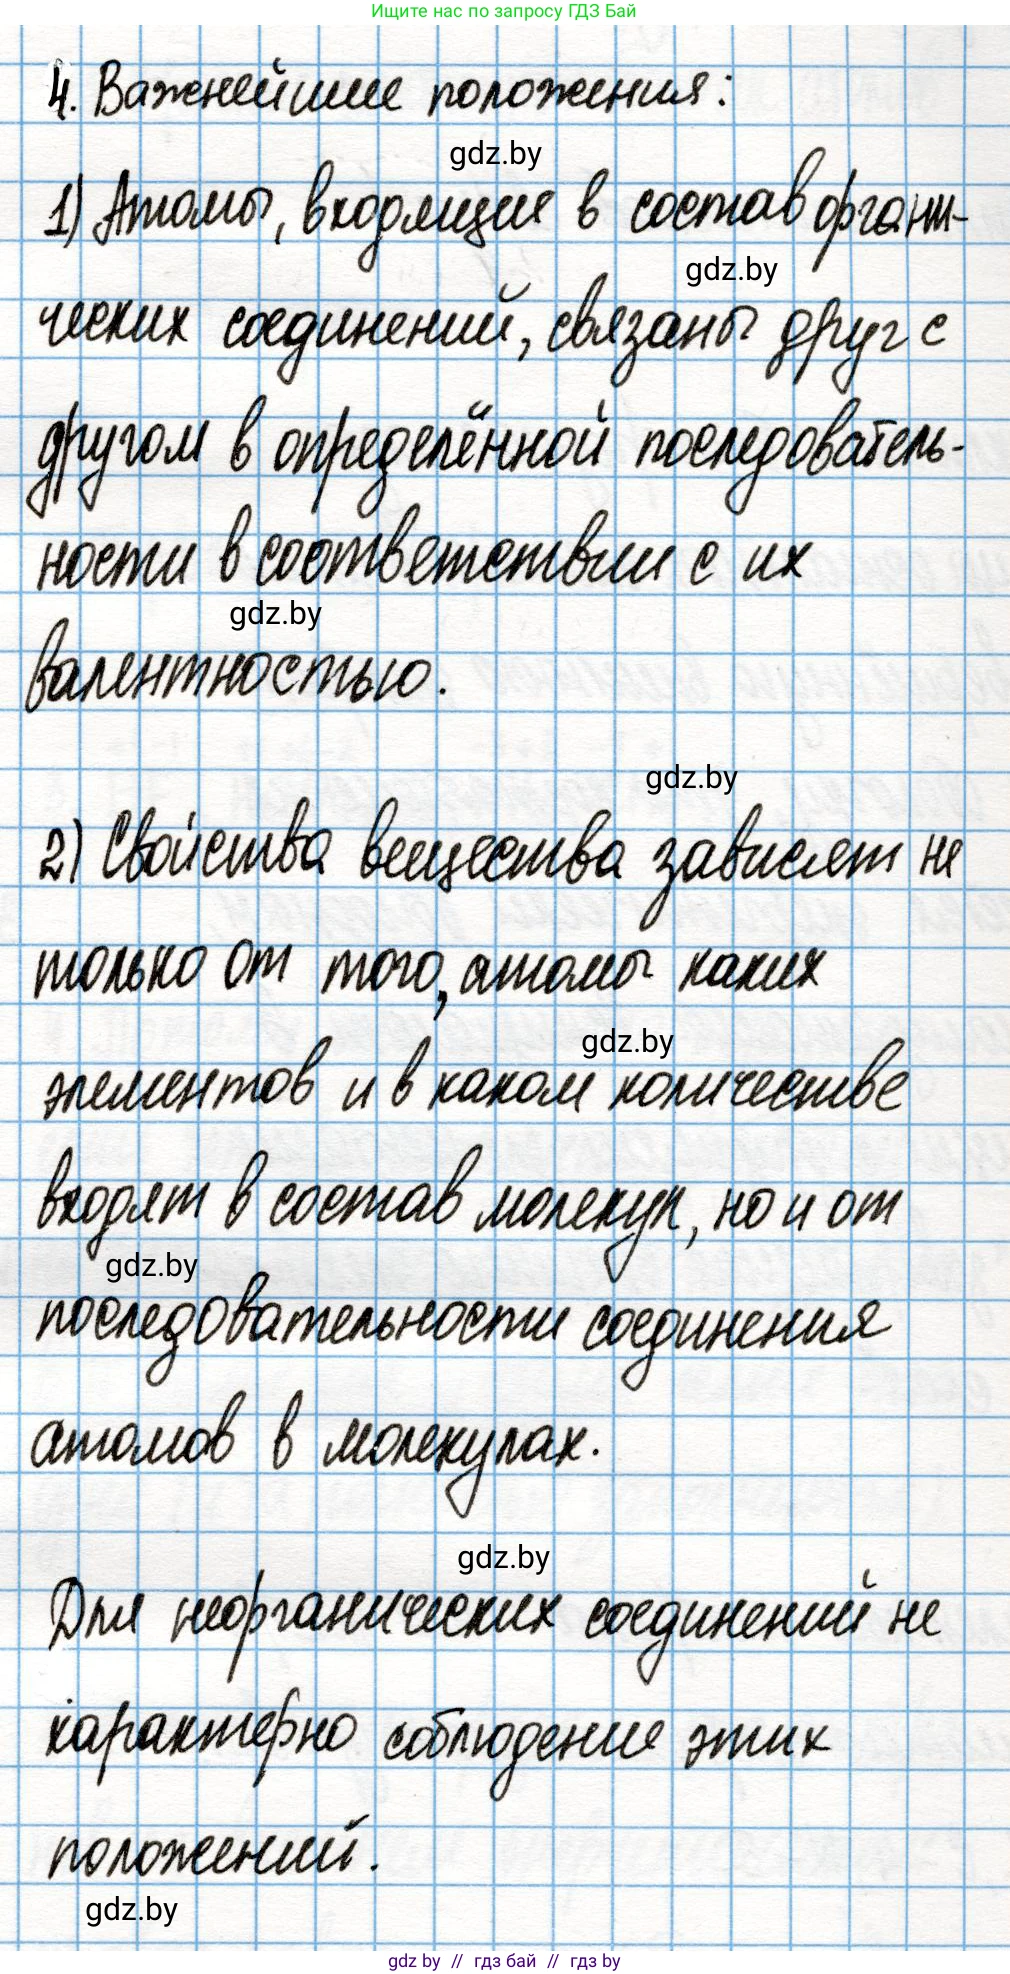 Ищите нас по запросу ГДЗ Бай
4. Важнейшие положения:
gdz.by
1) Атомы, входящие в состав органи-
gdz.by
ческих соединений, связаны друг с
другом в определённой последователь-
ности в соответствии с их
gdz.by
валентностью.
gdz.by
2) Свойства вещества зависят не
только от того, атомы каких
gdz.by
элементов и в каком количестве
входят в состав молекул, но и от
gdz.by
последовательности соединения
атомов в молекулах.
gdz.by
Для неорганических соединений не
характерно соблюдение этих
положений.
gdz.by
gdz by // гдз бай // gdz by